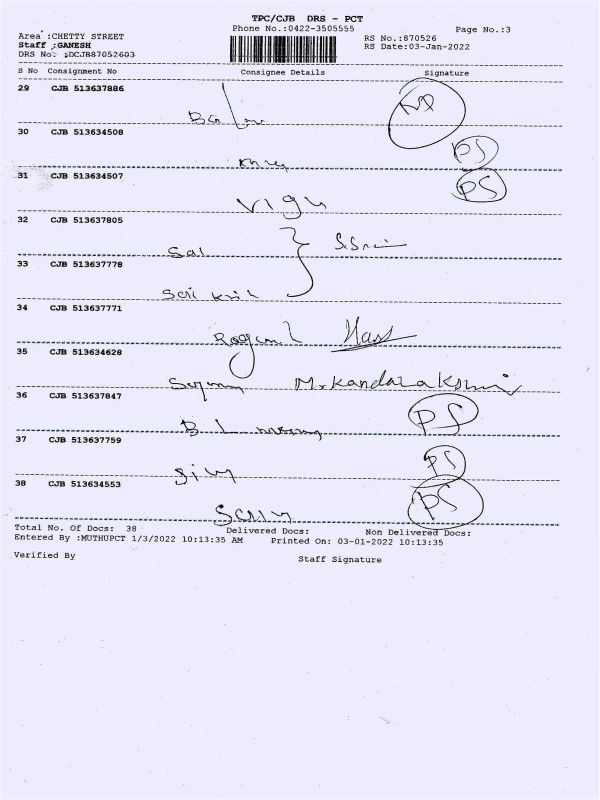 TPC/CJB DRS - PCT
Phone No.:0422-3505555
Page No.:3
Area :CHETTY STREET
RS No.:870526
Staff :GANESH
RS Date:03-Jan-2022
DRS No. :DCJB87052603
S No Consignment No Consignee Details Signature
29 CJB 513637886
30 CJB 513634508
PS
31 CJB 513634507
PS
Vigu
32 CJB 513637805
Sai
33 CJB 513637778
34 CJB 513637771
35 CJB 513634628
36 CJB 513637847
PS
37 CJB 513637759
PS
38 CJB 513634553
PS
Total No. Of Docs: 38 Delivered Docs: Non Delivered Docs:
Entered By :MUTHUPCT 1/3/2022 10:13:35 AM Printed On: 03-01-2022 10:13:35
Verified By Staff Signature